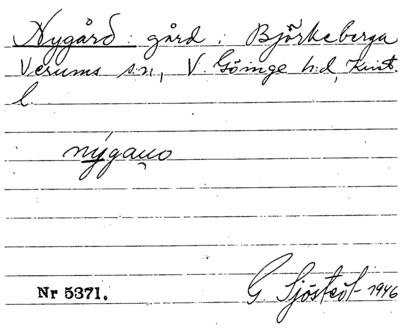 Nygård : gård : Björkeberga
Verums sn, V. Göinge hd, Krist.
l.
nýgau̯o
Nr 5371.
G. Sjöstedt 1946